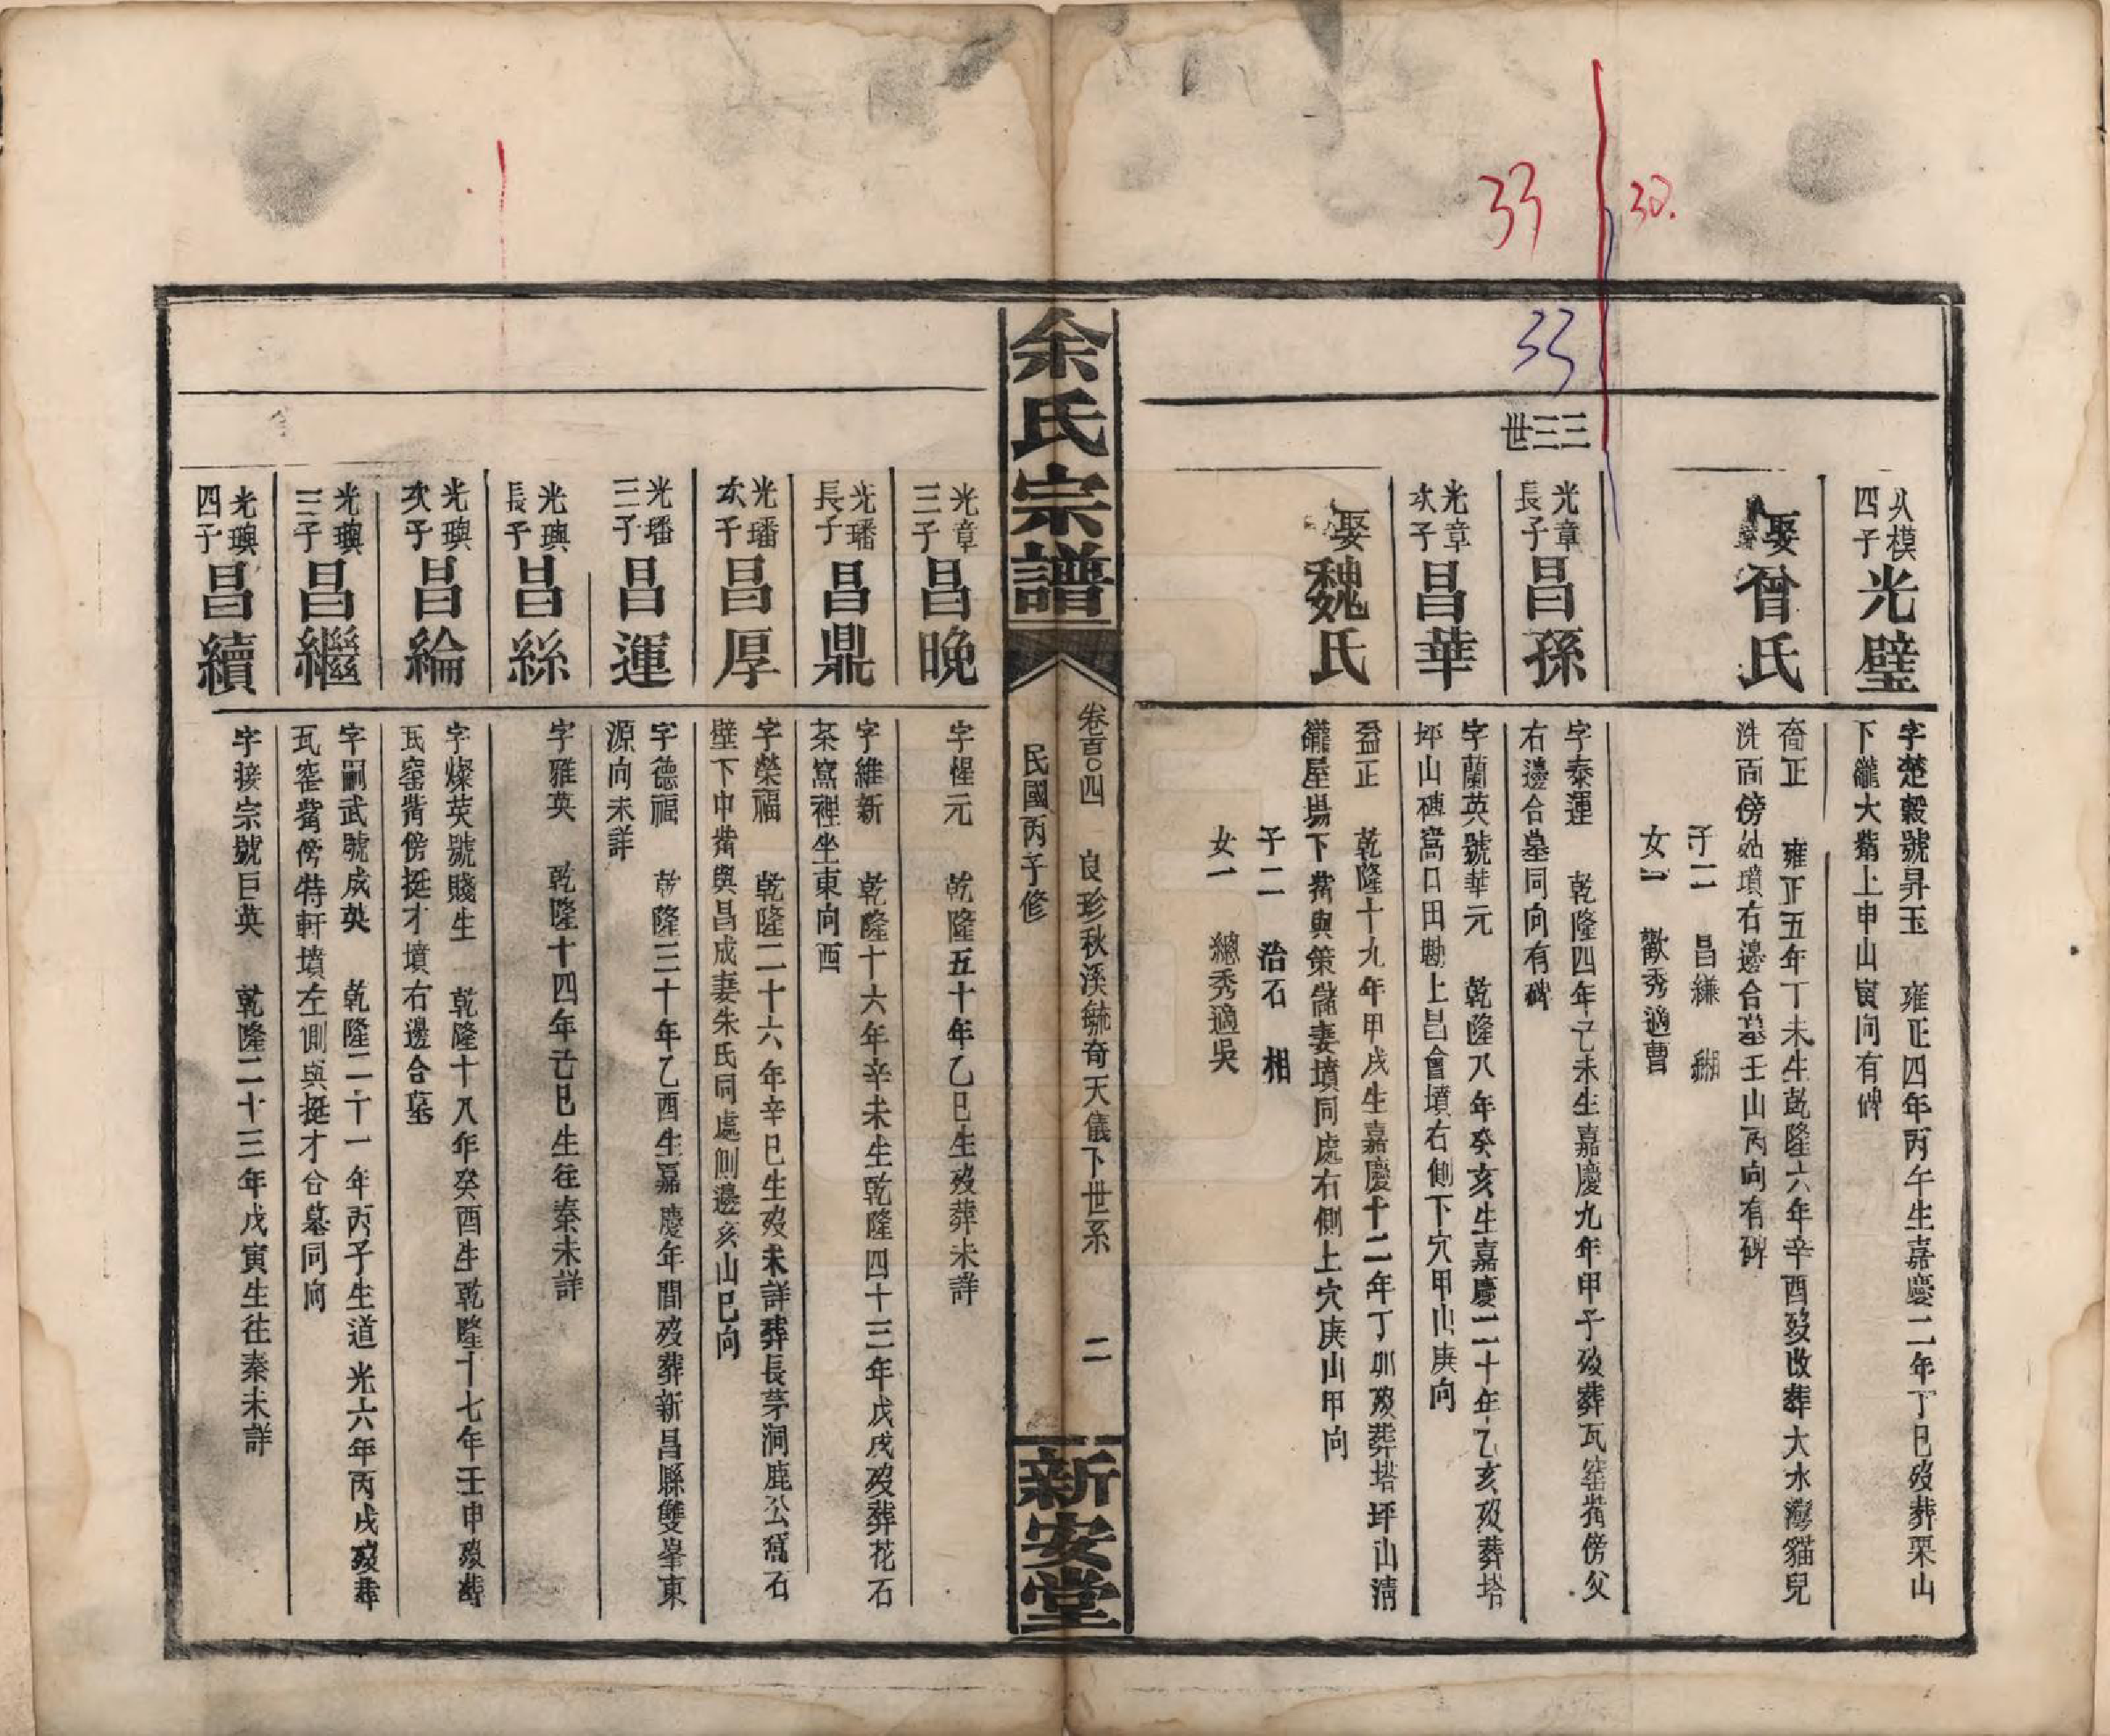 33
30.
33
模四子
光璧
字楚穀號昇玉　雍正四年丙午生嘉慶二年丁巳歿葬栗山
下龍大嘴上申山寅向有碑
娶
曾氏
正　雍正五年丁未生乾隆六年辛酉歿改葬大水灣貓兒
洗面傍姑墳右邊合墓壬山丙向有碑
子二　昌縑　緗
女一　歡秀適曹
三三世
光章長子
昌孫
字泰運　乾隆四年己未生嘉慶九年甲子歿葬瓦窑嘴傍父
右邊合墓同向有碑
光章次子
昌華
字蘭英號華元　乾隆八年癸亥生嘉慶二十年乙亥歿葬塔
坪山磚窩口田勘上昌會墳右側下穴甲山庚向
娶
魏氏
益正　乾隆十九年甲戌生嘉慶十二年丁卯歿葬塔坪山清
龍屋場下嘴與策儲妻墳同處右側上穴庚山甲向
子二　治石　相
女一　總秀適吳
余氏宗譜
卷百○四　良珍秋溪毓奇天儀下世系　二
民國丙子修
新安堂
光章三子
昌晚
字惺元　乾隆五十年乙巳生歿葬未詳
光璠長子
昌鼎
字維新　乾隆十六年辛未生乾隆四十三年戊戌歿葬花石
茶窩裡坐東向酉
光璠次子
昌厚
字榮福　乾隆二十六年辛巳生歿未詳葬長茅洞鹿公窩石
壁下中嘴與昌成妻朱氏同處側邊亥山巳向
光璠三子
昌運
字德福　乾隆三十年乙酉生嘉慶年間歿葬新昌縣雙峯東
源向未詳
光璵長子
昌絲
字雅英　乾隆十四年己巳生往秦未詳
光璵次子
昌綸
字燦英號賤生　乾隆十八年癸酉生乾隆十七年壬申歿葬
瓦窑嘴傍挺才墳右邊合墓
光璵三子
昌繼
字嗣武號成英　乾隆二十一年丙子生道光六年丙戌歿葬
瓦窑嘴傍特軒墳左側與挺才合墓同向
光璵四子
昌續
字接宗號巨英　乾隆二十三年戊寅生往秦未詳